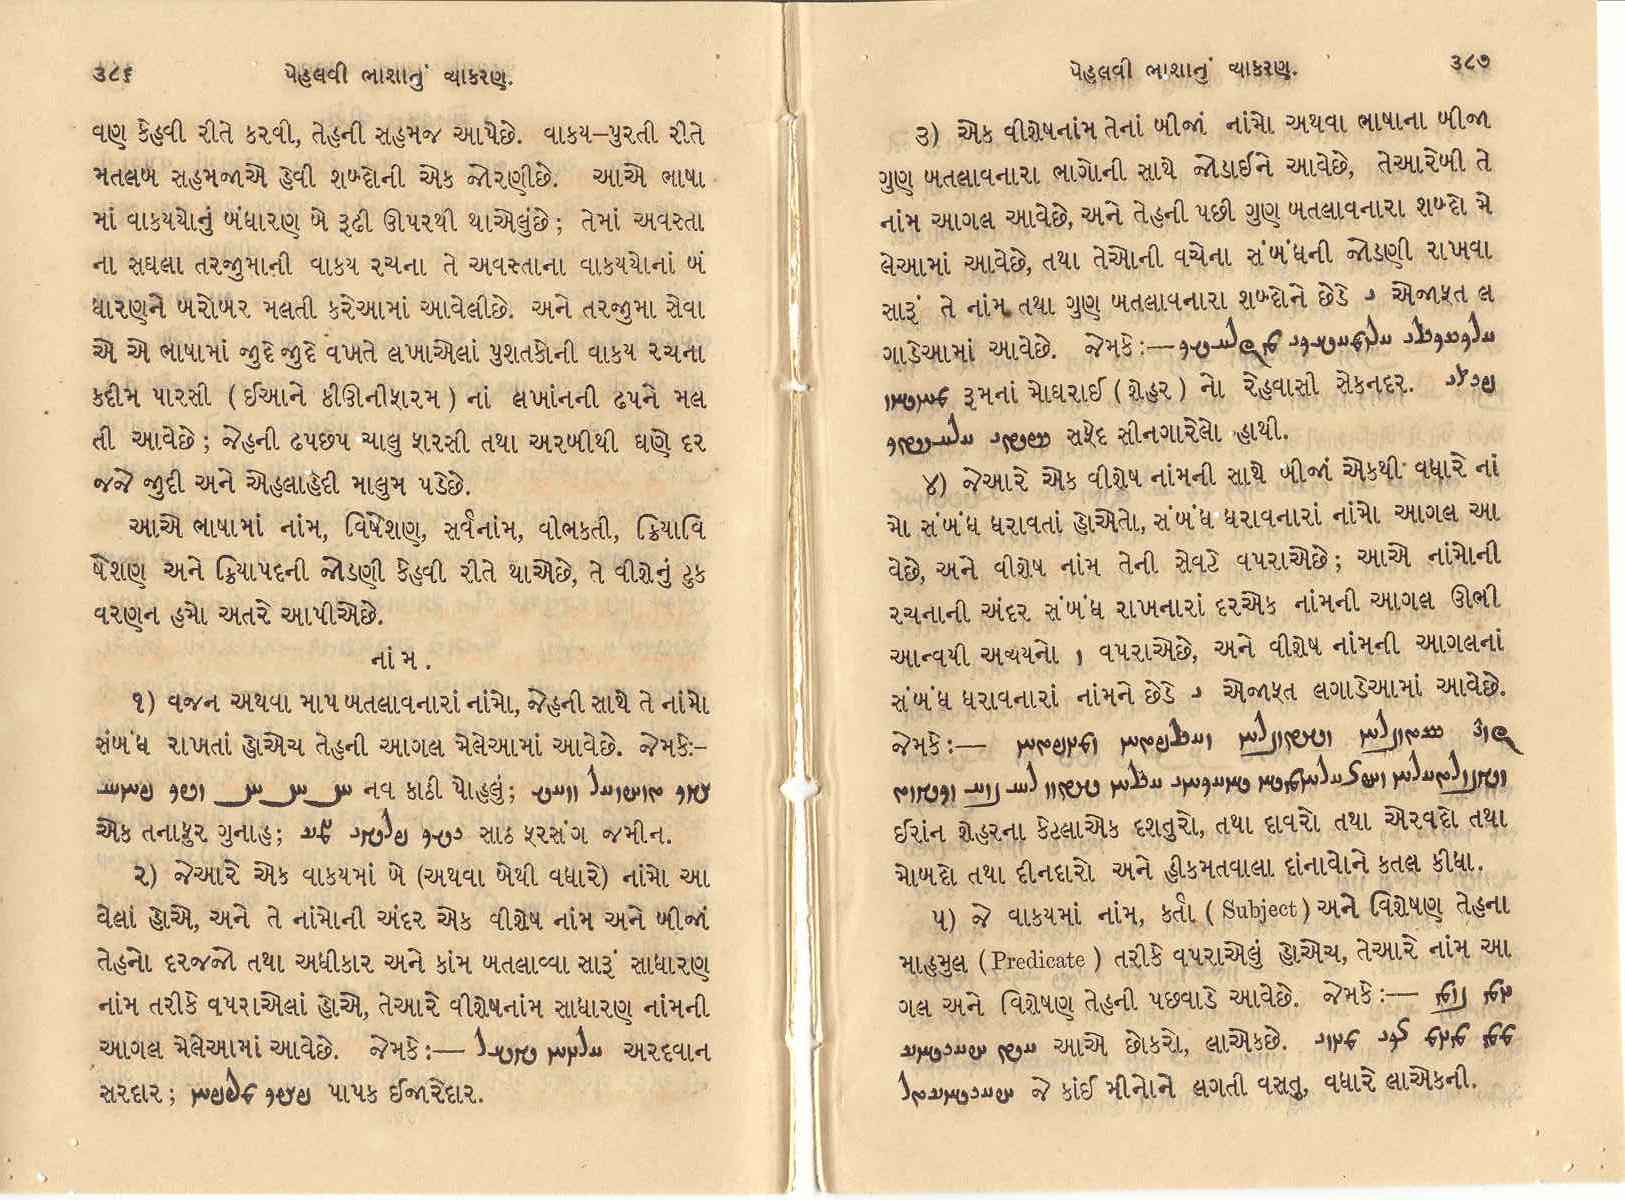 ૩૮૬ પેહલવી ભાશાનું વ્યાકરણ.
વણ કેહવી રીતે કરવી, તેહની સહમજ આપેછે. વાકય–પુરતી રીતે
મતલબ સહમજાએ હેવી શબ્દોની એક જોરણીછે. આએ ભાષા
માં વાકયયોનું બંધારણ બે રૂઢી ઊપરથી થાએલુંછે; તેમાં અવસ્તા
ના સઘલા તરજીમાની વાકય રચના તે અવસ્તાના વાકયયોનાં બં
ધારણને બરોબર મલતી કરેઆમાં આવેલીછે. અને તરજીમા સેવા
એ એ ભાષામાં જીદે જીદે વખતે લખાએલાં પુશતકોની વાકય રચના
કદીમ પારસી (ઈઆને કીઊનીફારમ) નાં લખાંનની ઢપને મલ
તી આવેછે; જેહની ઢપછપ ચાલુ ફારસી તથા અરબીથી ઘણે દર
જજે જીદી અને એહલાહેદી માલુમ પડેછે.
આએ ભાષામાં નાંમ, વિષેશણ, સર્વનાંમ, વીભકતી, ક્રિયાવિ
ષેશણ અને ક્રિયાપદની જોડણી કેહવી રીતે થાએછે, તે વીશેનું ટુક
વરણન હમો અતરે આપીએછે.
નાંમ.
૧) વજન અથવા માપ બતલાવનારાં નાંમો, જેહની સાથે તે નાંમો
સંબંધ રાખતાં હોએચ તેહની આગલ મેલેઆમાં આવેછે. જેમકે:–
નવ કાઠી પોહલું;
એક તનાફુર ગુનાહ; સાઠ ફરસંગ જમીન.
૨) જેઆરે એક વાકયમાં બે (અથવા બેથી વધારે) નાંમો આ
વેલાં હોએ, અને તે નાંમોની અંદર એક વીશેષ નાંમ અને બીજાં
તેહનો દરજજો તથા અધીકાર અને કાંમ બતલાવ્વા સારૂં સાધારણ
નાંમ તરીકે વપરાએલાં હોએ, તેઆરે વીશેષનાંમ સાધારણ નાંમની
આગલ મેલેઆમાં આવેછે. જેમકે:— અરદવાન
સરદાર; પાપક ઈજારેદાર.
પેહલવી ભાશાનું વ્યાકરણ. ૩૮૭
૩) એક વીશેષનાંમ તેનાં બીજાં નાંમો અથવા ભાષાના બીજા
ગુણ બતલાવનારા ભાગોની સાથે જોડાઈને આવેછે, તેઆરેબી તે
નાંમ આગલ આવેછે, અને તેહની પછી ગુણ બતલાવનારા શબ્દો મે
લેઆમાં આવેછે, તથા તેઓની વચેના સંબંધની જોડણી રાખવા
સારૂં તે નાંમ તથા ગુણ બતલાવનારા શબ્દોને છેડે એજાફત લ
ગાડેઆમાં આવેછે. જેમકે:—
રૂમનાં મોઘરાઈ (શેહર) નો રેહવાસી સેકનદર.
સફેદ સીનગારેલો હાથી.
૪) જેઆરે એક વીશેષ નાંમની સાથે બીજાં એકથી વધારે નાં
મો સંબંધ ધરાવતાં હોએતો, સંબંધ ધરાવનારાં નાંમો આગલ આ
વેછે, અને વીશેષ નાંમ તેની સેવટે વપરાએછે; આએ નાંમોની
રચનાની અંદર સંબંધ રાખનારાં દરએક નાંમની આગલ ઊભી
આન્વયી અવ્યયનો વપરાએછે, અને વીશેષ નાંમની આગલનાં
સંબંધ ધરાવનારાં નાંમને છેડે એજાફત લગાડેઆમાં આવેછે.
જેમકે:—
ઈરાંન શેહરના કેટલાએક દશતુરો, તથા દાવરો તથા એરવદો તથા
મોબદો તથા દીનદારો અને હીકમતવાલા દાંનાવોને કતલ કીધા.
૫) જે વાકયમાં નાંમ, કર્તા (Subject) અને વિશેષણ તેહના
માહમુલ (Predicate) તરીકે વપરાએલું હોએચ, તેઆરે નાંમ આ
ગલ અને વિશેષણ તેહની પછવાડે આવેછે. જેમકે:—
આએ છોકરો, લાએકછે.
જે કાંઈ મીનોને લગતી વસતુ, વધારે લાએકની.